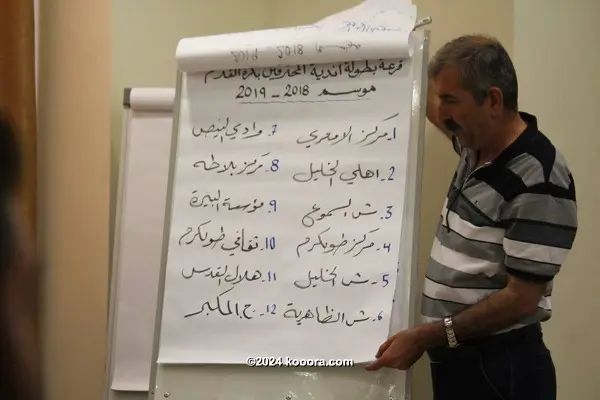 قرعة بطولة اندية المحترفين بكرة القدم
موسم 2018 - 2019
1. مركز الامعري
2. اهلي الخليل
3. ش السموع
4. مركز طولكرم
5. ش الخليل
6. ش الظاهرية
7. وادي النيص
8. مركز بلاطه
9. مؤسسة البيرة
10. ثقافي طولكرم
11. هلال القدس
12. ج. المكبر
©2024 kooora.com